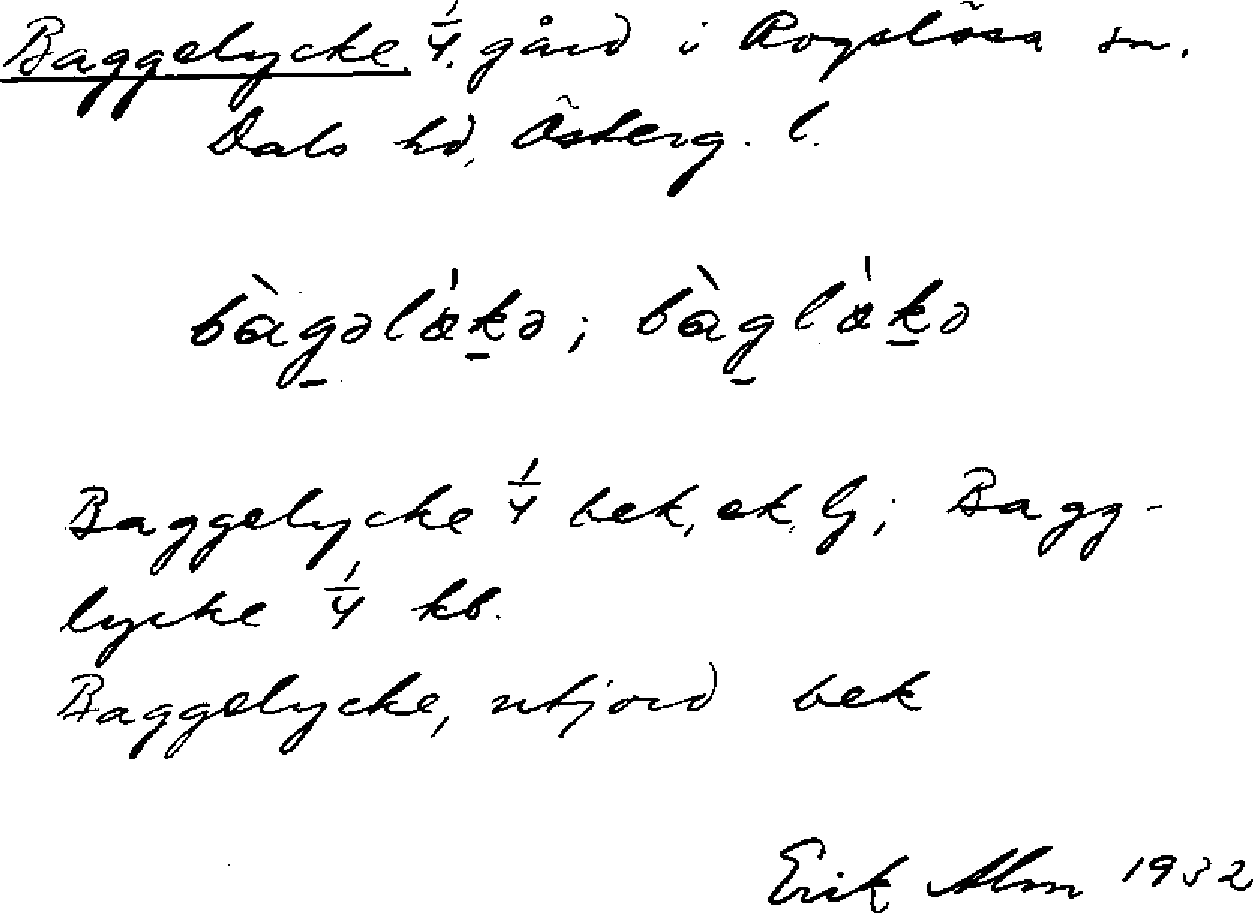 Baggelycke 1/4, gård i Rogslösa sn.
Dals hd, Österg. l.
bàgəlǿkə; bàglǿkə
Baggelycke 1/4 bek, ek, Gj; Bagg-
lycke 1/4 kb.
Baggelycke, utjord bek
Erik Alm 1932